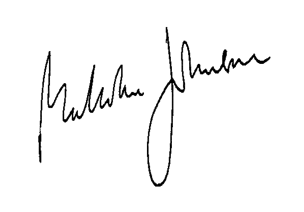 Malcolm Johnson